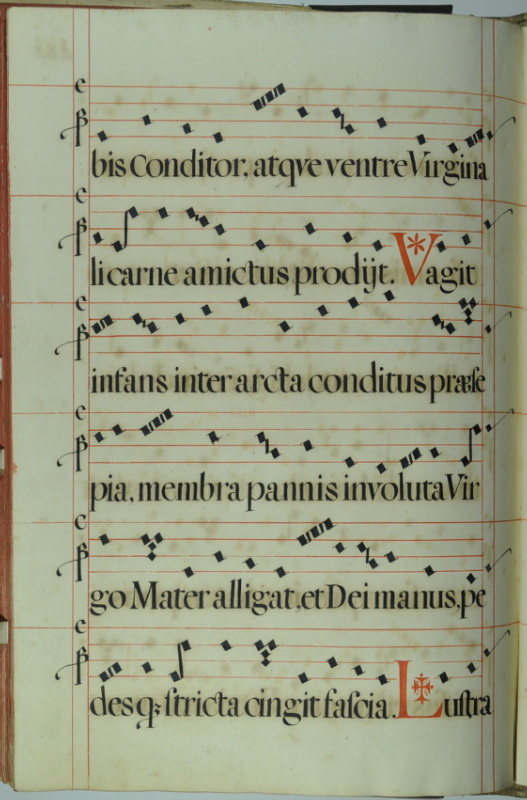 bis Conditor, atqve ventre Virgina
li carne amictus prodijt. Vagit
infans inter arcta conditus præse
pia, membra pannis involuta Vir
go Mater alligat, et Dei manus, pe
des q; stricta cingit fascia. Lustra